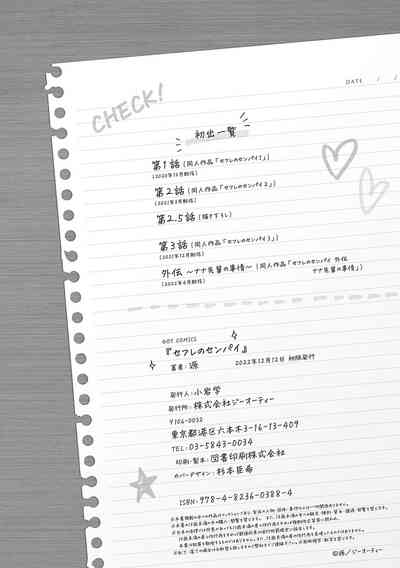 DATE / /
CHECK!
初出一覧
第1話 (同人作品「セフレのセンパイ1」)
(2020年12月配信)
第2話 (同人作品「セフレのセンパイ2」)
(2021年5月配信)
第2.5話 (描き下ろし)
第3話 (同人作品「セフレのセンパイ3」)
(2021年12月配信)
外伝 ～ナナ先輩の事情～ (同人作品「セフレのセンパイ 外伝
ナナ先輩の事情」)
(2022年6月配信)
GOT COMICS
『セフレのセンパイ』
著者:源
2022年12月12日 初版発行
発行人:小岩学
発行所:株式会社ジーオーティー
〒106-0032
東京都港区六本木3-16-13-409
TEL:03-5843-0034
印刷・製本:図書印刷株式会社
カバーデザイン:杉本臣希
ISBN:978-4-8236-0388-4
©源/ジーオーティー